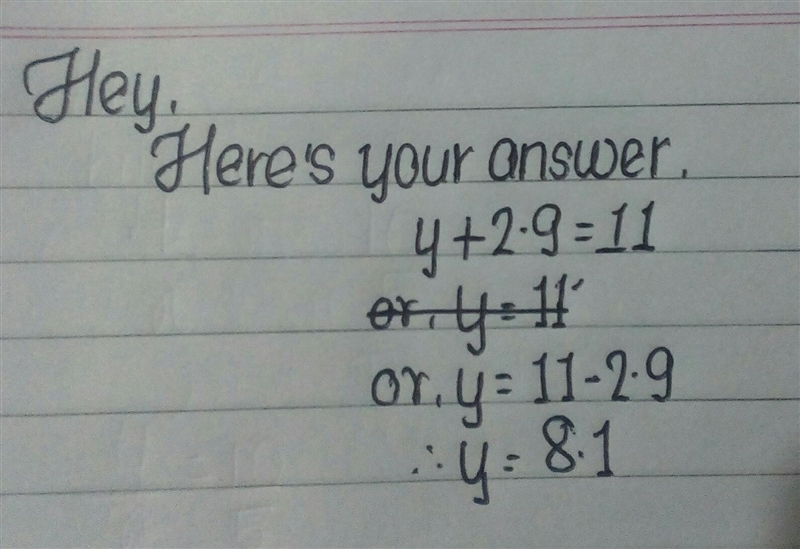 Hey.
Here's your answer.
y+2·9=11
or, y=11
or, y=11-2·9
∴y=8·1